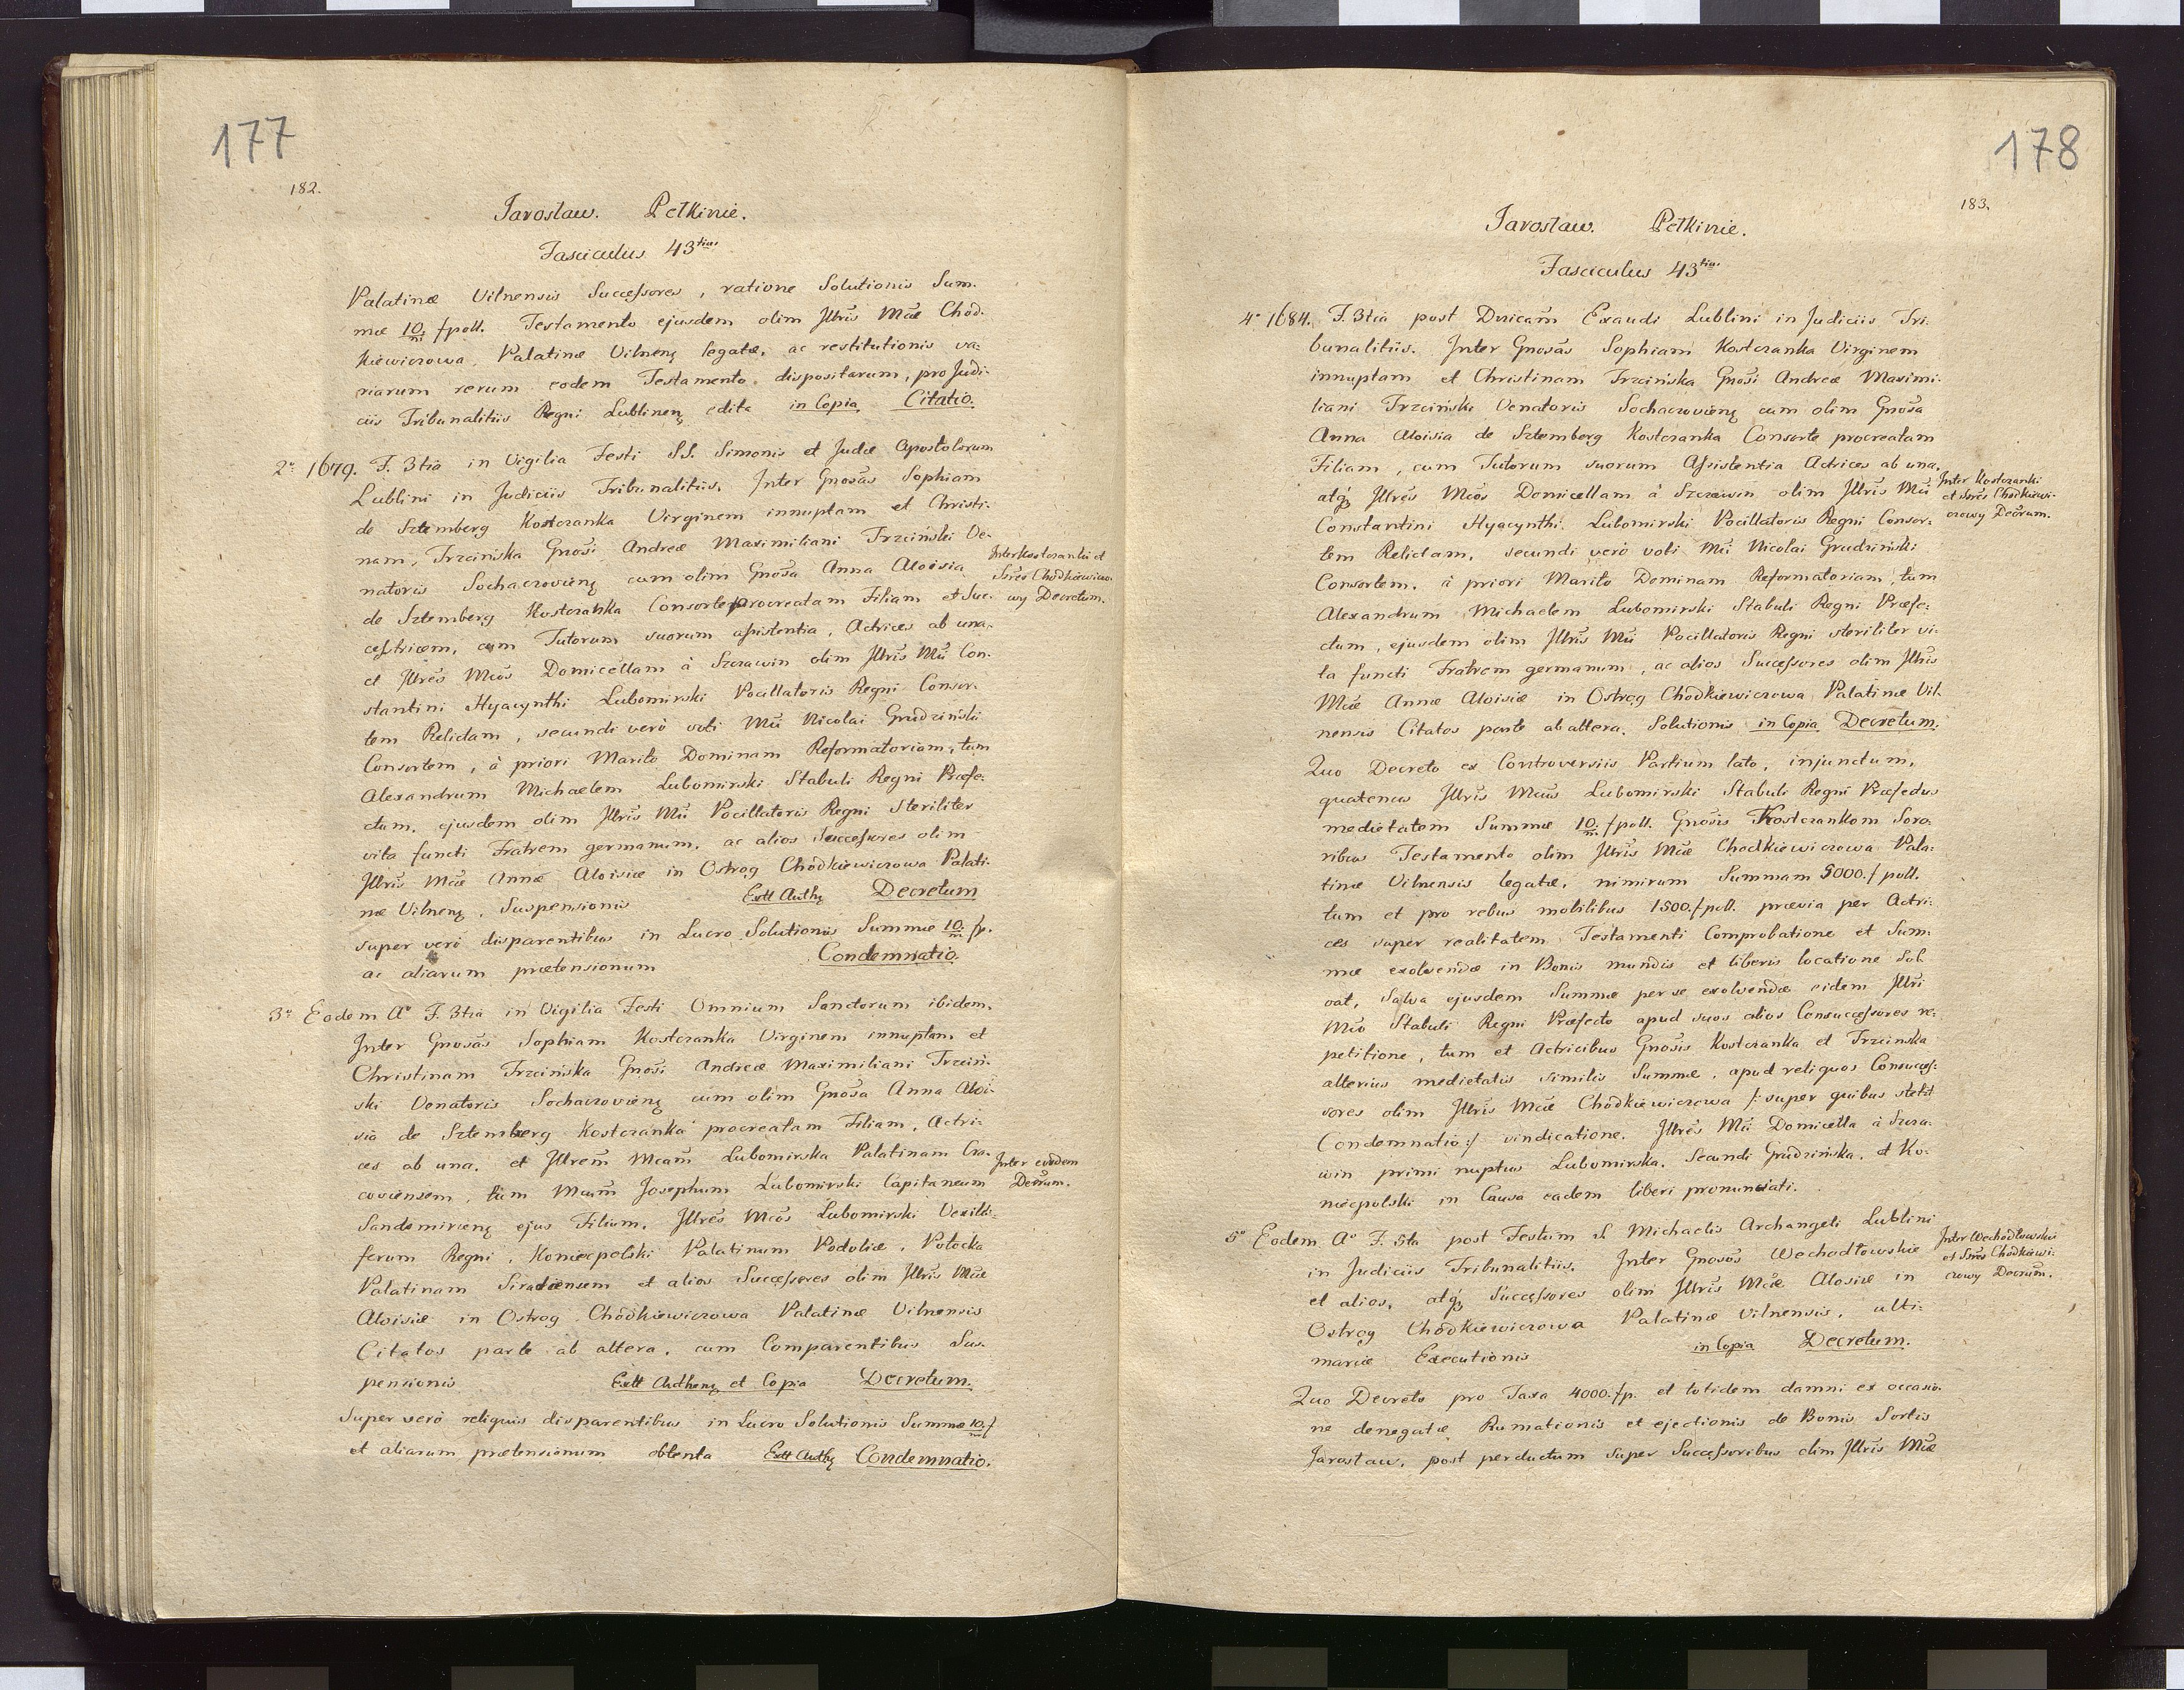 177
182.
Jaroslaw. Pełkinie.
Fasciculus 43tius
Palatinæ Vilnensis Successores, ratione Solutionis Sum-
mæ 10/m f poll. Testamento ejusdem olim Jllris Mcæ Chod-
kiewiczowa Palatinæ Vilnenę legatæ, ac restitutionis va-
riarum rerum eodem Testamento dispositarum, pro Judi-
ciis Tribunalitiis Regni Lublinenę edita in Copia Citatio.
2º 1679. F. 3tia in Vigilia Festi S.S. Simonis et Judæ Apostolorum
Lublini in Judiciis Tribunalitiis. Inter Gnosas Sophiam
de Sztemberg Kostczanka Virginem innuptam et Christi-
nam, Trzcińska Gnosi Andreæ Maximiliani Trzciński Ve-
natoris Sochaczovienę cum olim Gnosa Anna Aloisia
de Sztemberg Kostczanka Consorte procreatam Filiam et Suc-
cestricem, cum Tutorum suorum assistentia, Actrices ab una,
et Jllres Mcos Domicellam à Szczawin olim Jllris Mci Con-
stantini Hyacynthi Lubomirski Pocillatoris Regni Consor-
tem Relictam, secundi verò voti Mci Nicolai Grudziński
Consortem, à priori Marito Dominam Reformatoriam, tum
Alexandrum Michaelem Lubomirski Stabuli Regni Præfe-
ctum, ejusdem olim Jllris Mci Pocillatoris Regni Steriliter
vita functi Fratrem germanum, ac alios Successores olim
Jllris Mcæ Annæ Aloisiæ in Ostrog Chodkiewiczowa Palati-
næ Vilnenę, Suspensionis Extt Authę Decretum
super verò disparentibus in Lucro Solutionis Summæ 10/m fp.
ac aliarum prætensionum Condemnatio.
Inter Kostczanki et
Sśres Chodkiewiczo-
wy Decretum.
3º Eodem Aº F. 3tia in Vigilia Festi Omnium Sanctorum ibidem,
Inter Gnosas Sophiam Kostczanka Virginem innuptam et
Christinam Trzcińska Gnosi Andreæ Maximiliani Trzciń-
ski Venatoris Sochaczovienę cum olim Gnosa Anna Aloi-
sia de Sztemberg Kostczanka procreatam Filiam, Actri-
ces ab una, et Jllrem Mcam Lubomirska Palatinam Cra-
coviensem, tum Mcum Josephum Lubomirski Capitaneum
Sandomirienę ejus Filium, Jllres Mcos Lubomirski Vexilli-
ferum Regni, Koniecpolski Palatinum Podoliæ, Potocka
Palatinam Siradiensem et alios Successores olim Jllris Mcæ
Aloisiæ in Ostrog Chodkiewiczowa Palatinæ Vilnensis
Citatos parte ab altera, cum Comparentibus Sus-
pensionis Extt Authenę et Copia Decretum.
Super verò reliquis disparentibus in Lucro Solutionis Summæ 10/m f
et aliarum prætensionum obtenta Extt Authę Condemnatio.
Inter eosdem
Decrum.
178
183.
Jaroslaw. Pełkinie.
Fasciculus 43tius
4º 1684. F. 3tia post Dnicam Exaudi Lublini in Judiciis Tri-
bunalitiis. Inter Gnosas Sophiam Kostczanka Virginem
innuptam et Christinam Trzcińska Gnosi Andreæ Maximi-
liani Trzciński Venatoris Sochaczovienę cum olim Gnosa
Anna Aloisia de Sztemberg Kostczanka Consorte procreatam
Filiam, cum Tutorum suorum Assistentia Actrices ab una,
atq; Jllres Mcos Domicellam à Szczawin olim Jllris Mci
Constantini Hyacynthi Lubomirski Pocillatoris Regni Consor-
tem Relictam, secundi verò voti Mci Nicolai Grudziński
Consortem, à priori Marito Dominam Reformatoriam, tum
Alexandrum Michaelem Lubomirski Stabuli Regni Præfe-
ctum, ejusdem olim Jllris Mci Pocillatoris Regni steriliter vi-
ta functi Fratrem germanum, ac alios Successores olim Jllris
Mcæ Annæ Aloisiæ in Ostrog Chodkiewiczowa Palatinæ Vil-
nensis Citatos parte ab altera. Solutionis in Copia Decretum.
Inter Kostczanki
et Sśres Chodkiewi-
czowy Decrum.
Quo Decreto ex Controversiis Partium lato, injunctum,
quatenus Jllris Mcus Lubomirski Stabuli Regni Præfectus
medietatem Summæ 10/m f poll. Gnosis Kostczankom Soro-
ribus Testamento olim Jllris Mcæ Chodkiewiczowa Pala-
tinæ Vilnensis legatæ, nimirum Summam 5000 f poll.
tum et pro rebus mobilibus 1500 f poll. prævia per Actri-
ces super realitatem Testamenti Comprobatione et Sum-
mæ exolvendæ in Bonis mundis et liberis locatione Sol-
vat, Salva ejusdem Summæ per se exolvendæ eidem Jllri
Mco Stabuli Regni Præfecto apud suos alios Consuccessores re-
petitione, tum et Actricibus Gnosis Kostczanka et Trzcinska
alterius medietatis similis Summæ, apud reliquos Consucces-
sores olim Jllris Mcæ Chodkiewiczowa /: super quibus stetit
Condemnatio :/ vindicatione. Jllres Mci Domicella à Szcza-
win primi nuptus Lubomirska, Secundi Grudzińska, et Ko-
niecpolski in Causa eadem liberi pronunciati.
5º Eodem Aº F. 5ta post Festum S. Michaelis Archangeli Lublini
in Judiciis Tribunalitiis. Inter Gnosos Wechodłowskie
et alios, atq; Successores olim Jllris Mcæ Aloisiæ in
Ostrog Chodkiewiczowa Palatinæ Vilnensis, ulti-
mariæ Executionis in Copia Decretum.
Inter Wechodłowskie
et Sśres Chodkiewi-
czowy Decrum.
Quo Decreto pro Taxa 4000 fp. et totidem damni ex occasio-
ne denegatæ Rumationis et ejectionis de Bonis Sortis
Jarostaw, post perductum super Successoribus olim Jllris Mcæ